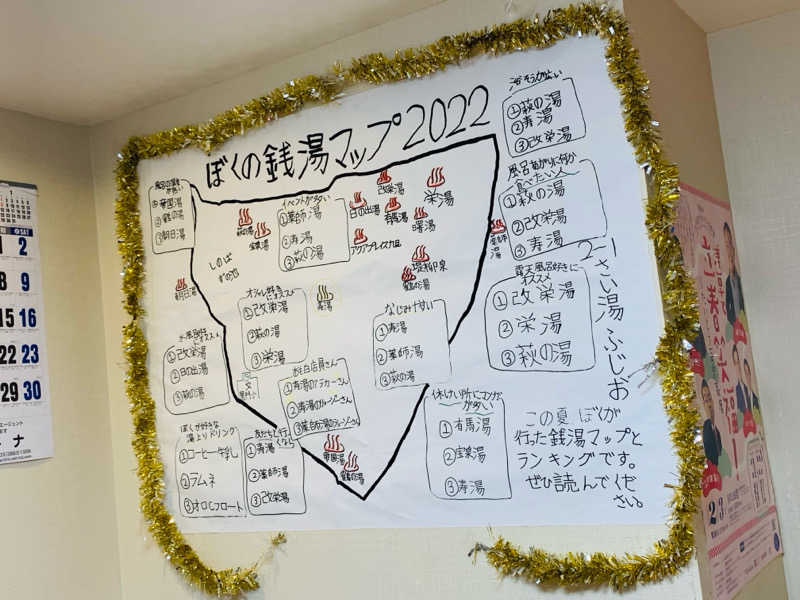 ぼくの銭湯マップ2022
浴そうが広い
①萩の湯
②寿湯
③改栄湯
風呂あがりに何か
食べたい人
①萩の湯
②改栄湯
③寿湯
露天風呂好きに
オススメ
①改栄湯
②栄湯
③萩の湯
2-1
さい湯ふじお
この夏ぼくが
行った銭湯マップと
ランキングです。
ぜひ読んでくだ
さい。
③朝日湯
イベントが多い
①薬師湯
②寿湯
③萩の湯
改栄湯
栄湯
日の出湯
有馬湯
曙湯
アクアプレイス旭
堤柳泉
鶴の湯
薬師湯
萩の湯
宝泉湯
しのば
ずの池
朝日湯
寿湯
①改栄湯
②萩の湯
③栄湯
なじみやすい
①寿湯
②薬師湯
③萩の湯
水風呂好き
にオススメ
①改栄湯
②日の出湯
③萩の湯
面白店員さん
①寿湯のブラッカーさん
②寿湯のガルーゾーさん
ぼくが好きな
湯上りドリンク
①コーヒー牛乳
②ラムネ
③オロCフロート
友だちと行く
なら
①寿湯
②薬師湯
③改栄湯
帝国湯
休けい所にマンガ
が多い
①有馬湯
②宝泉湯
③寿湯
SAT
1
2
8
9
15
16
22
23
29
30
立春
2/3